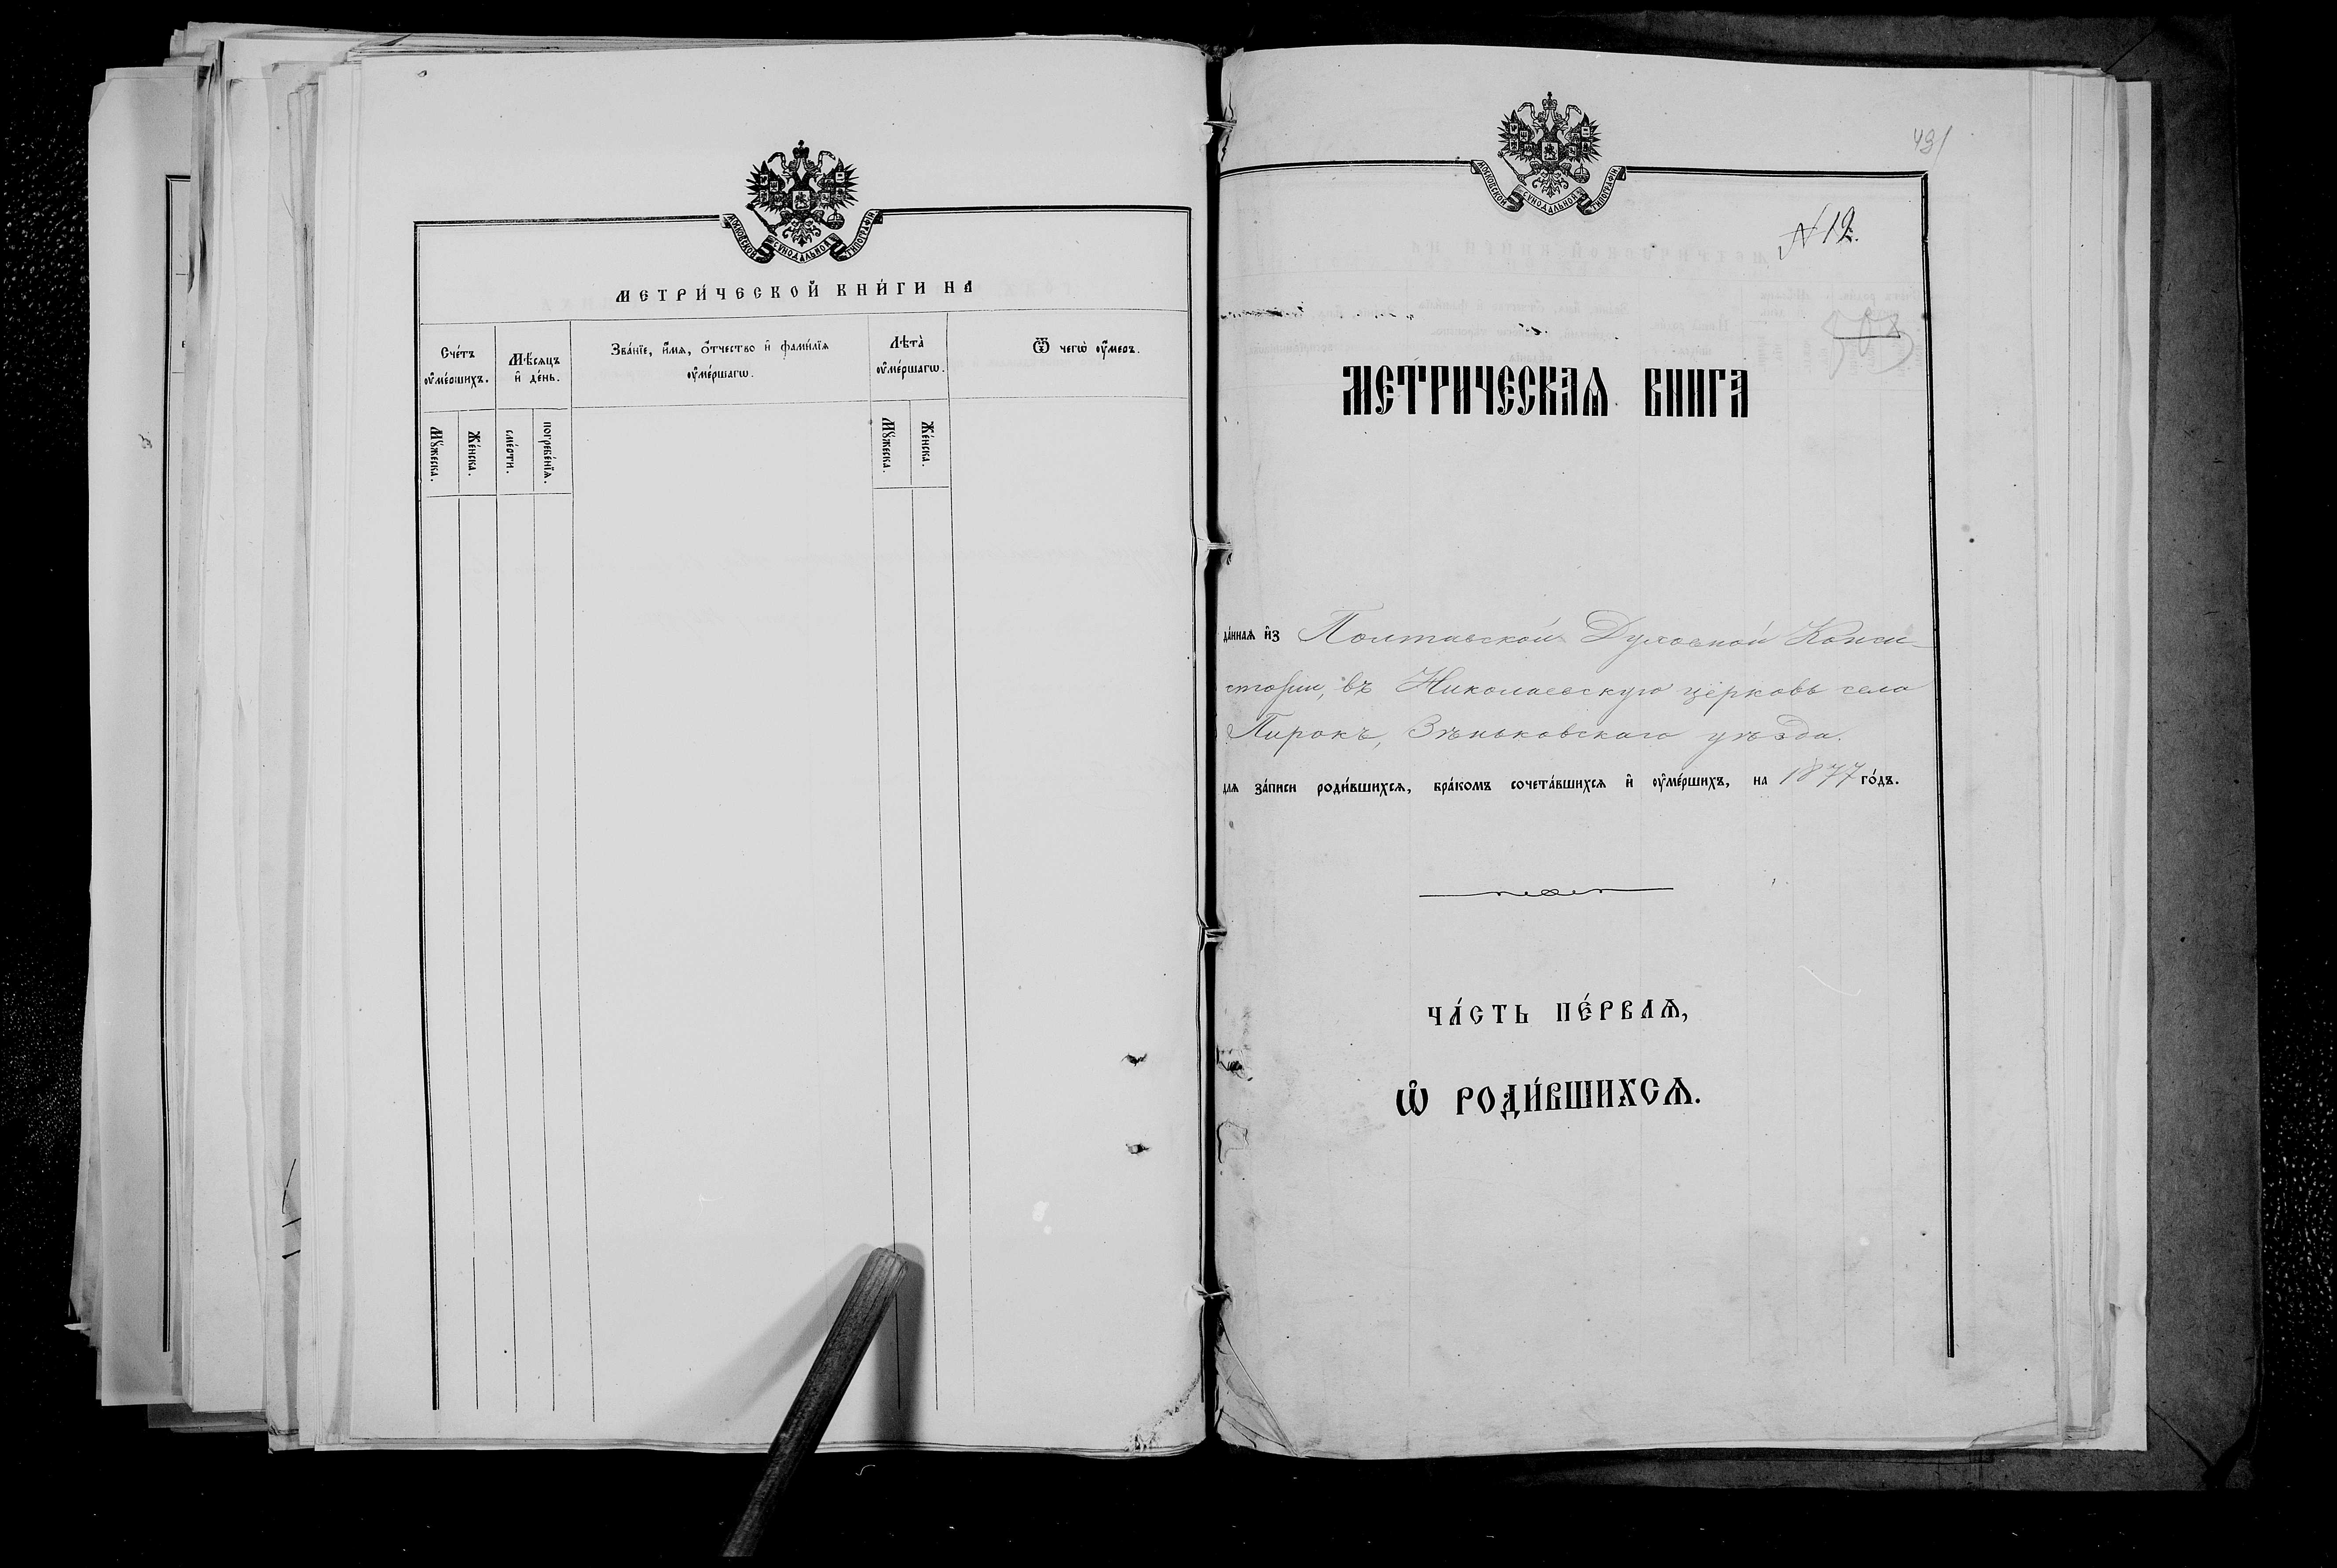 МОСКОВСКОЙ СѴНОДАЛЬНОЙ ТИПОГРАФІИ
МЕТРИ́ЧЕСКОЙ КНИ́ГИ НА
Сче́тъ ᲂу҆ме́ршихъ.
Мѣ́сяцъ и҆ де́нь.
Зва́нїе, и҆́мѧ, ѻ҆́тчество и҆ фами́лїѧ
ᲂу҆ме́ршагѡ.
Лѣта̀ ᲂу҆ме́ршагѡ.
Ѿ чегѡ̀ ᲂу҆́меръ.
Мꙋ́жеска.
Же́нска.
сме́рти.
погребе́нїѧ.
Мꙋ́жеска.
Же́нска.
МОСКОВСКОЙ СѴНОДАЛЬНОЙ ТИПОГРАФІИ
№ 12.
МЕТРИЧЕСКАѦ КНИГА
да́ннаѧ и҆з Полтавской Духовной Конси-
сторіи, въ Николаевскую церковь села
Пирокъ, Зѣньковскаго уѣзда.
для за́писи роди́вшихсѧ, бра́комъ сочета́вшихсѧ и҆ ᲂу҆ме́ршихъ, на 1877 го́дъ.
ЧА́СТЬ ПЕ́РВАѦ,
Ѡ҆ РОДИ́ВШИХСѦ.